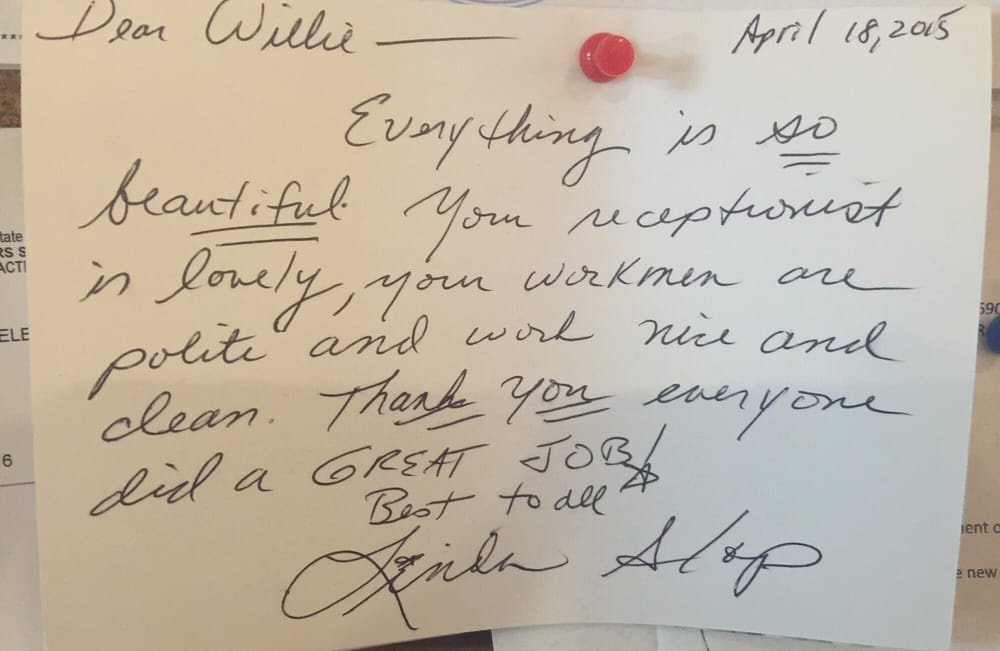 Dear Willie — April 18, 2015
Everything is so
beautiful. Your receptionist
is lovely, your workmen are
polite and work nice and
clean. Thank you everyone
did a GREAT JOB!
Best to all
Linda
tate
RS S
ACTI
ELE
6
590
R
ent c
e new